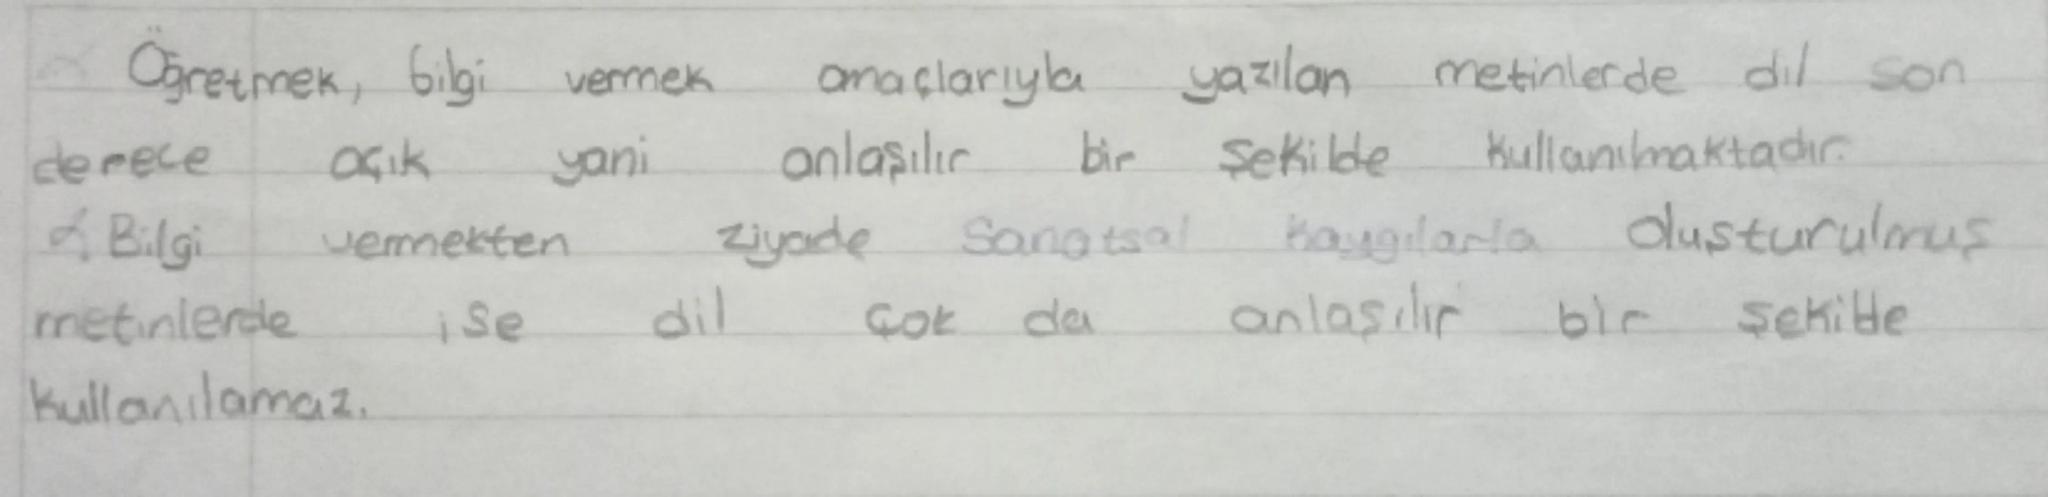 Öğretmek, bilgi vermek amaçlarıyla yazılan metinlerde dil son
derece açık yani anlaşılır bir şekilde kullanılmaktadır.
Bilgi vermekten ziyade sanatsal kaygılarla oluşturulmuş
metinlerde ise dil çok da anlaşılır bir şekilde
kullanılamaz.